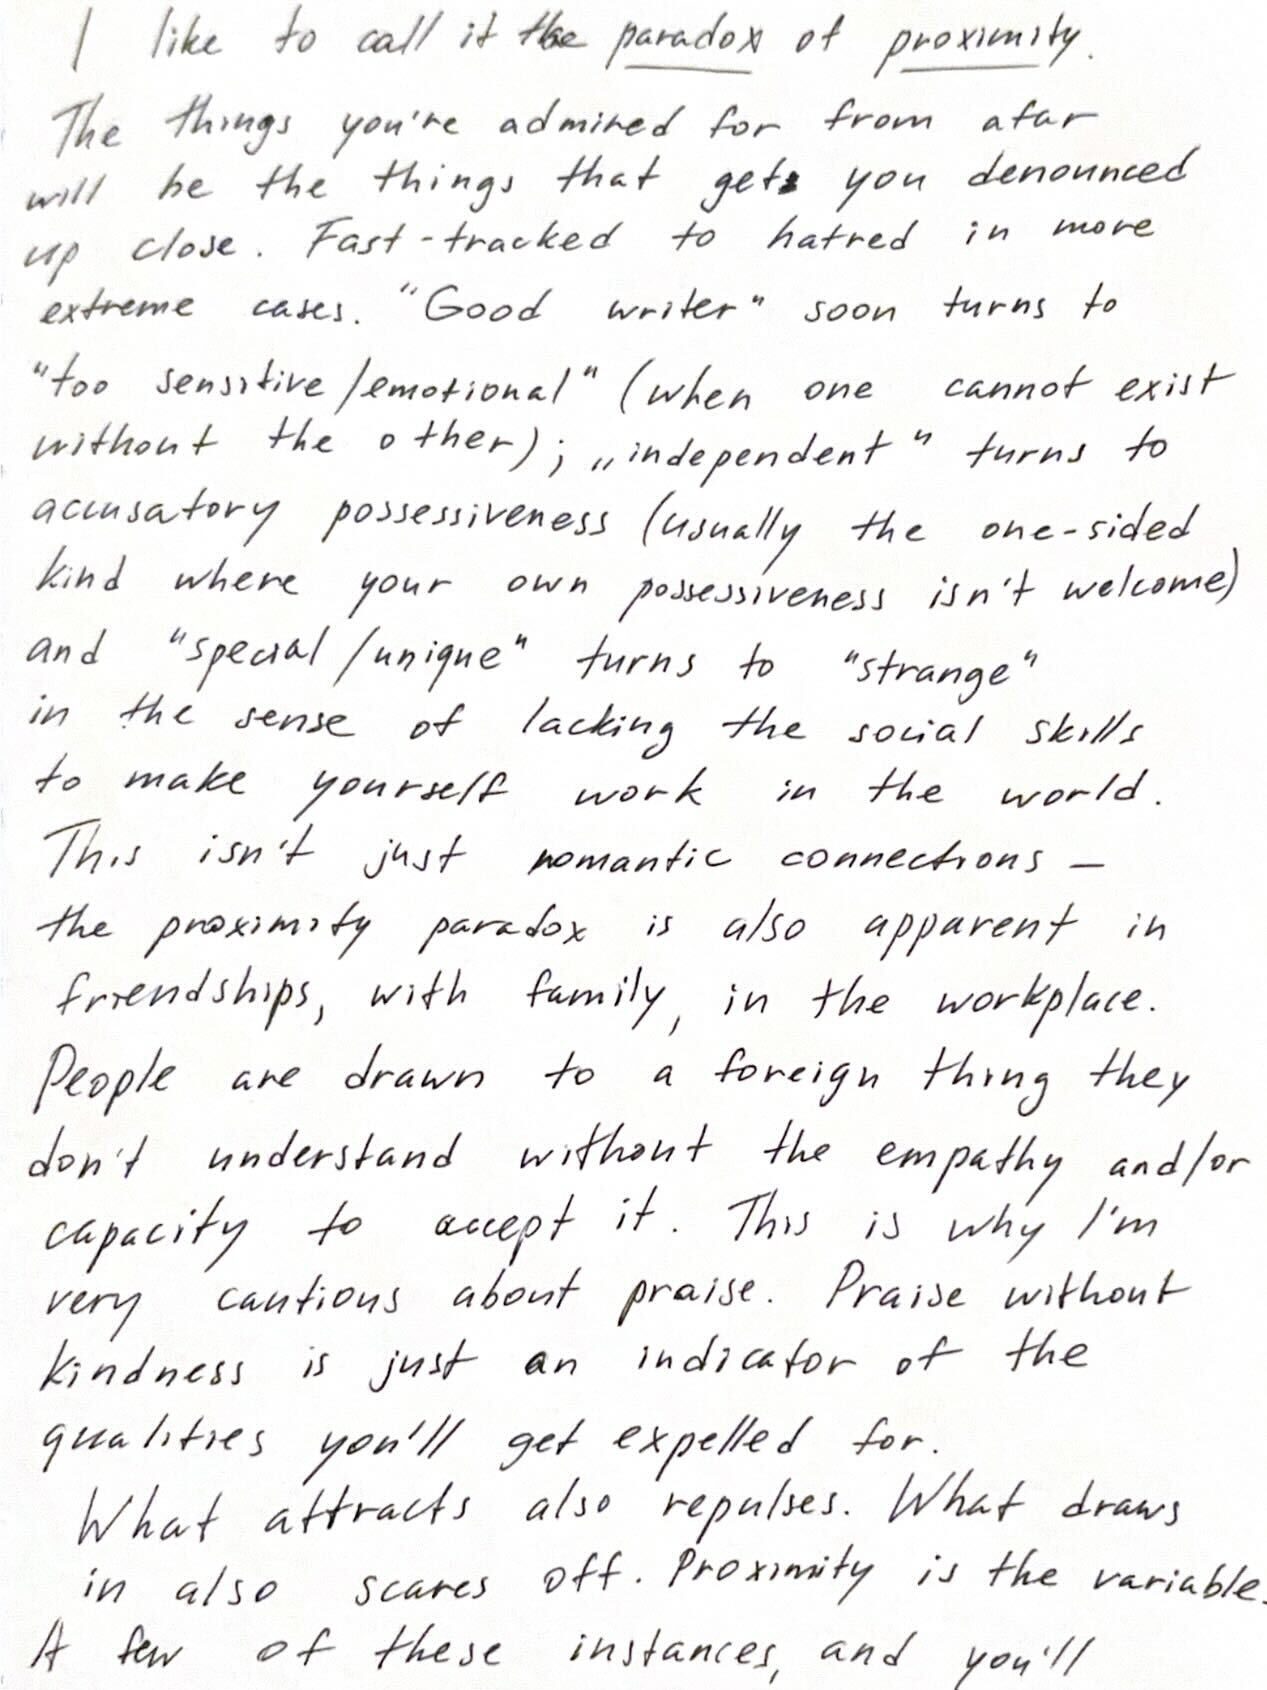 I like to call it the paradox of proximity.
The things you're admired for from afar
will be the things that gets you denounced
up close. Fast-tracked to hatred in more
extreme cases. "Good writer" soon turns to
"too sensitive/emotional" (when one cannot exist
without the other); „independent" turns to
accusatory possessiveness (usually the one-sided
kind where your own possessiveness isn't welcome)
and "special/unique" turns to "strange"
in the sense of lacking the social skills
to make yourself work in the world.
This isn't just romantic connections –
the proximity paradox is also apparent in
friendships, with family, in the workplace.
People are drawn to a foreign thing they
don't understand without the empathy and/or
capacity to accept it. This is why I'm
very cautious about praise. Praise without
kindness is just an indicator of the
qualities you'll get expelled for.
What attracts also repulses. What draws
in also scares off. Proximity is the variable.
A few of these instances, and you'll